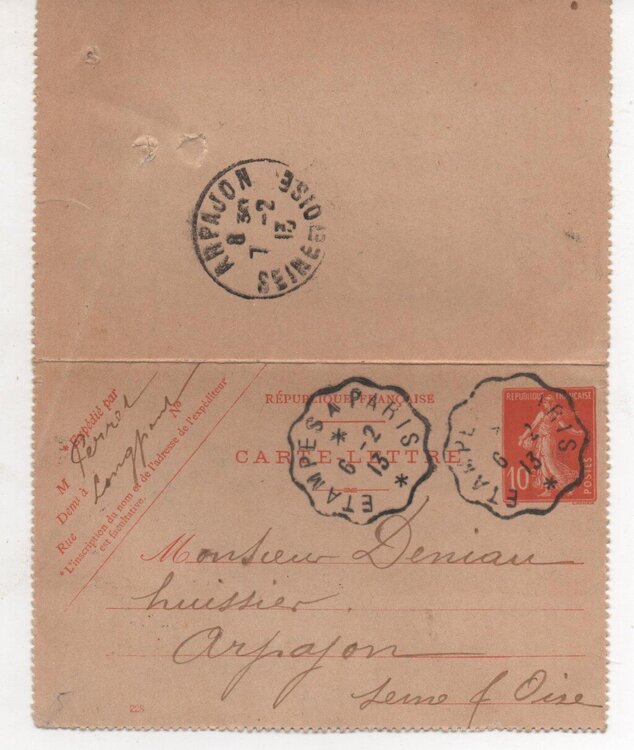 ARPAJON
8 35
7 -2
13
SEINE ET OISE
* Expédié par
M Perrot
Demt à Longpont
Rue No
*L'inscription du nom et de l'adresse de l'expéditeur
est facultative.
RÉPUBLIQUE FRANÇAISE
CARTE-LETTRE
ETAMPES A PARIS
*
6 -2
13
*
ETAMPES PARIS
6 -2
13
*
REPUBLIQUE FRANÇAISE
10
POSTES
Monsieur Deniau
huissier
Arpajon
Seine & Oise
5
228